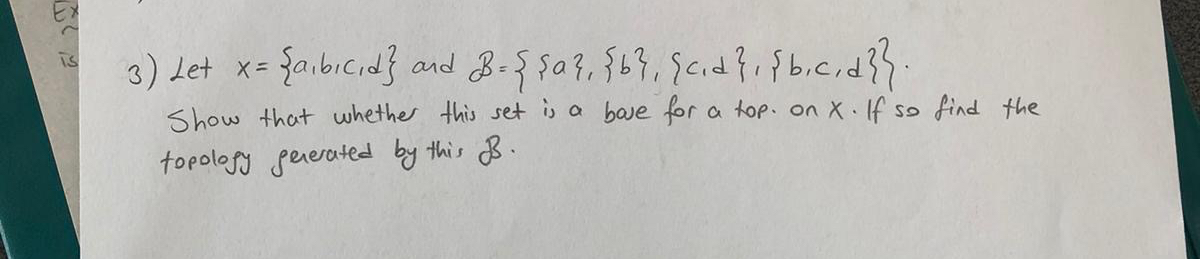 Ex
is
3) Let x = {a,b,c,d} and B = { {a}, {b}, {c,d}, {b,c,d}}.
Show that whether this set is a base for a top. on X. If so find the
topology generated by this B.